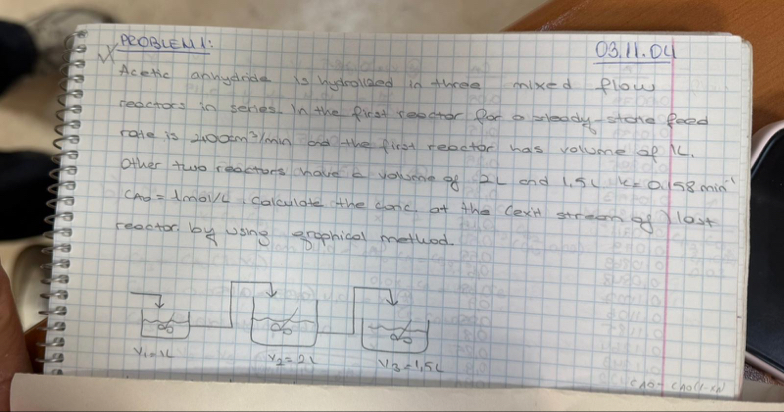 PROBLEM 1:
03.11.04
Acetic anhydride is hydrolized in three mixed flow
reactors in series. In the first reactor for a steady-state feed
rate is 2400cm³/min and the first reactor has volume of 1L.
Other two reactors have a volume of 2L and 1,5L k=0,158 min⁻¹
CA0=1mol/L. Calculate the conc at the (exit stream of) last
reactor by using graphical method.
V1=1L
V2=2L
V3=1,5L